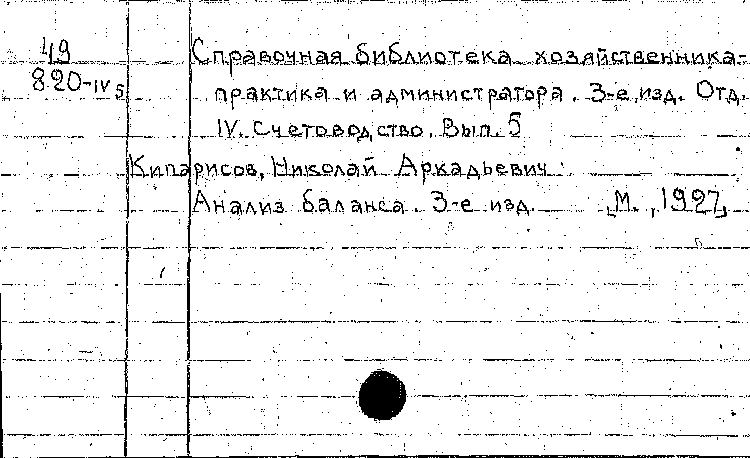 49
820-IV5
Справочная библиотека хозяйственника-
практика и администратора. 3-е изд. Отд.
IV. Счетоводство. Вып. 5
Кипарисов, Николай Аркадьевич.
Анализ баланса. 3-е изд. [М., 1927]